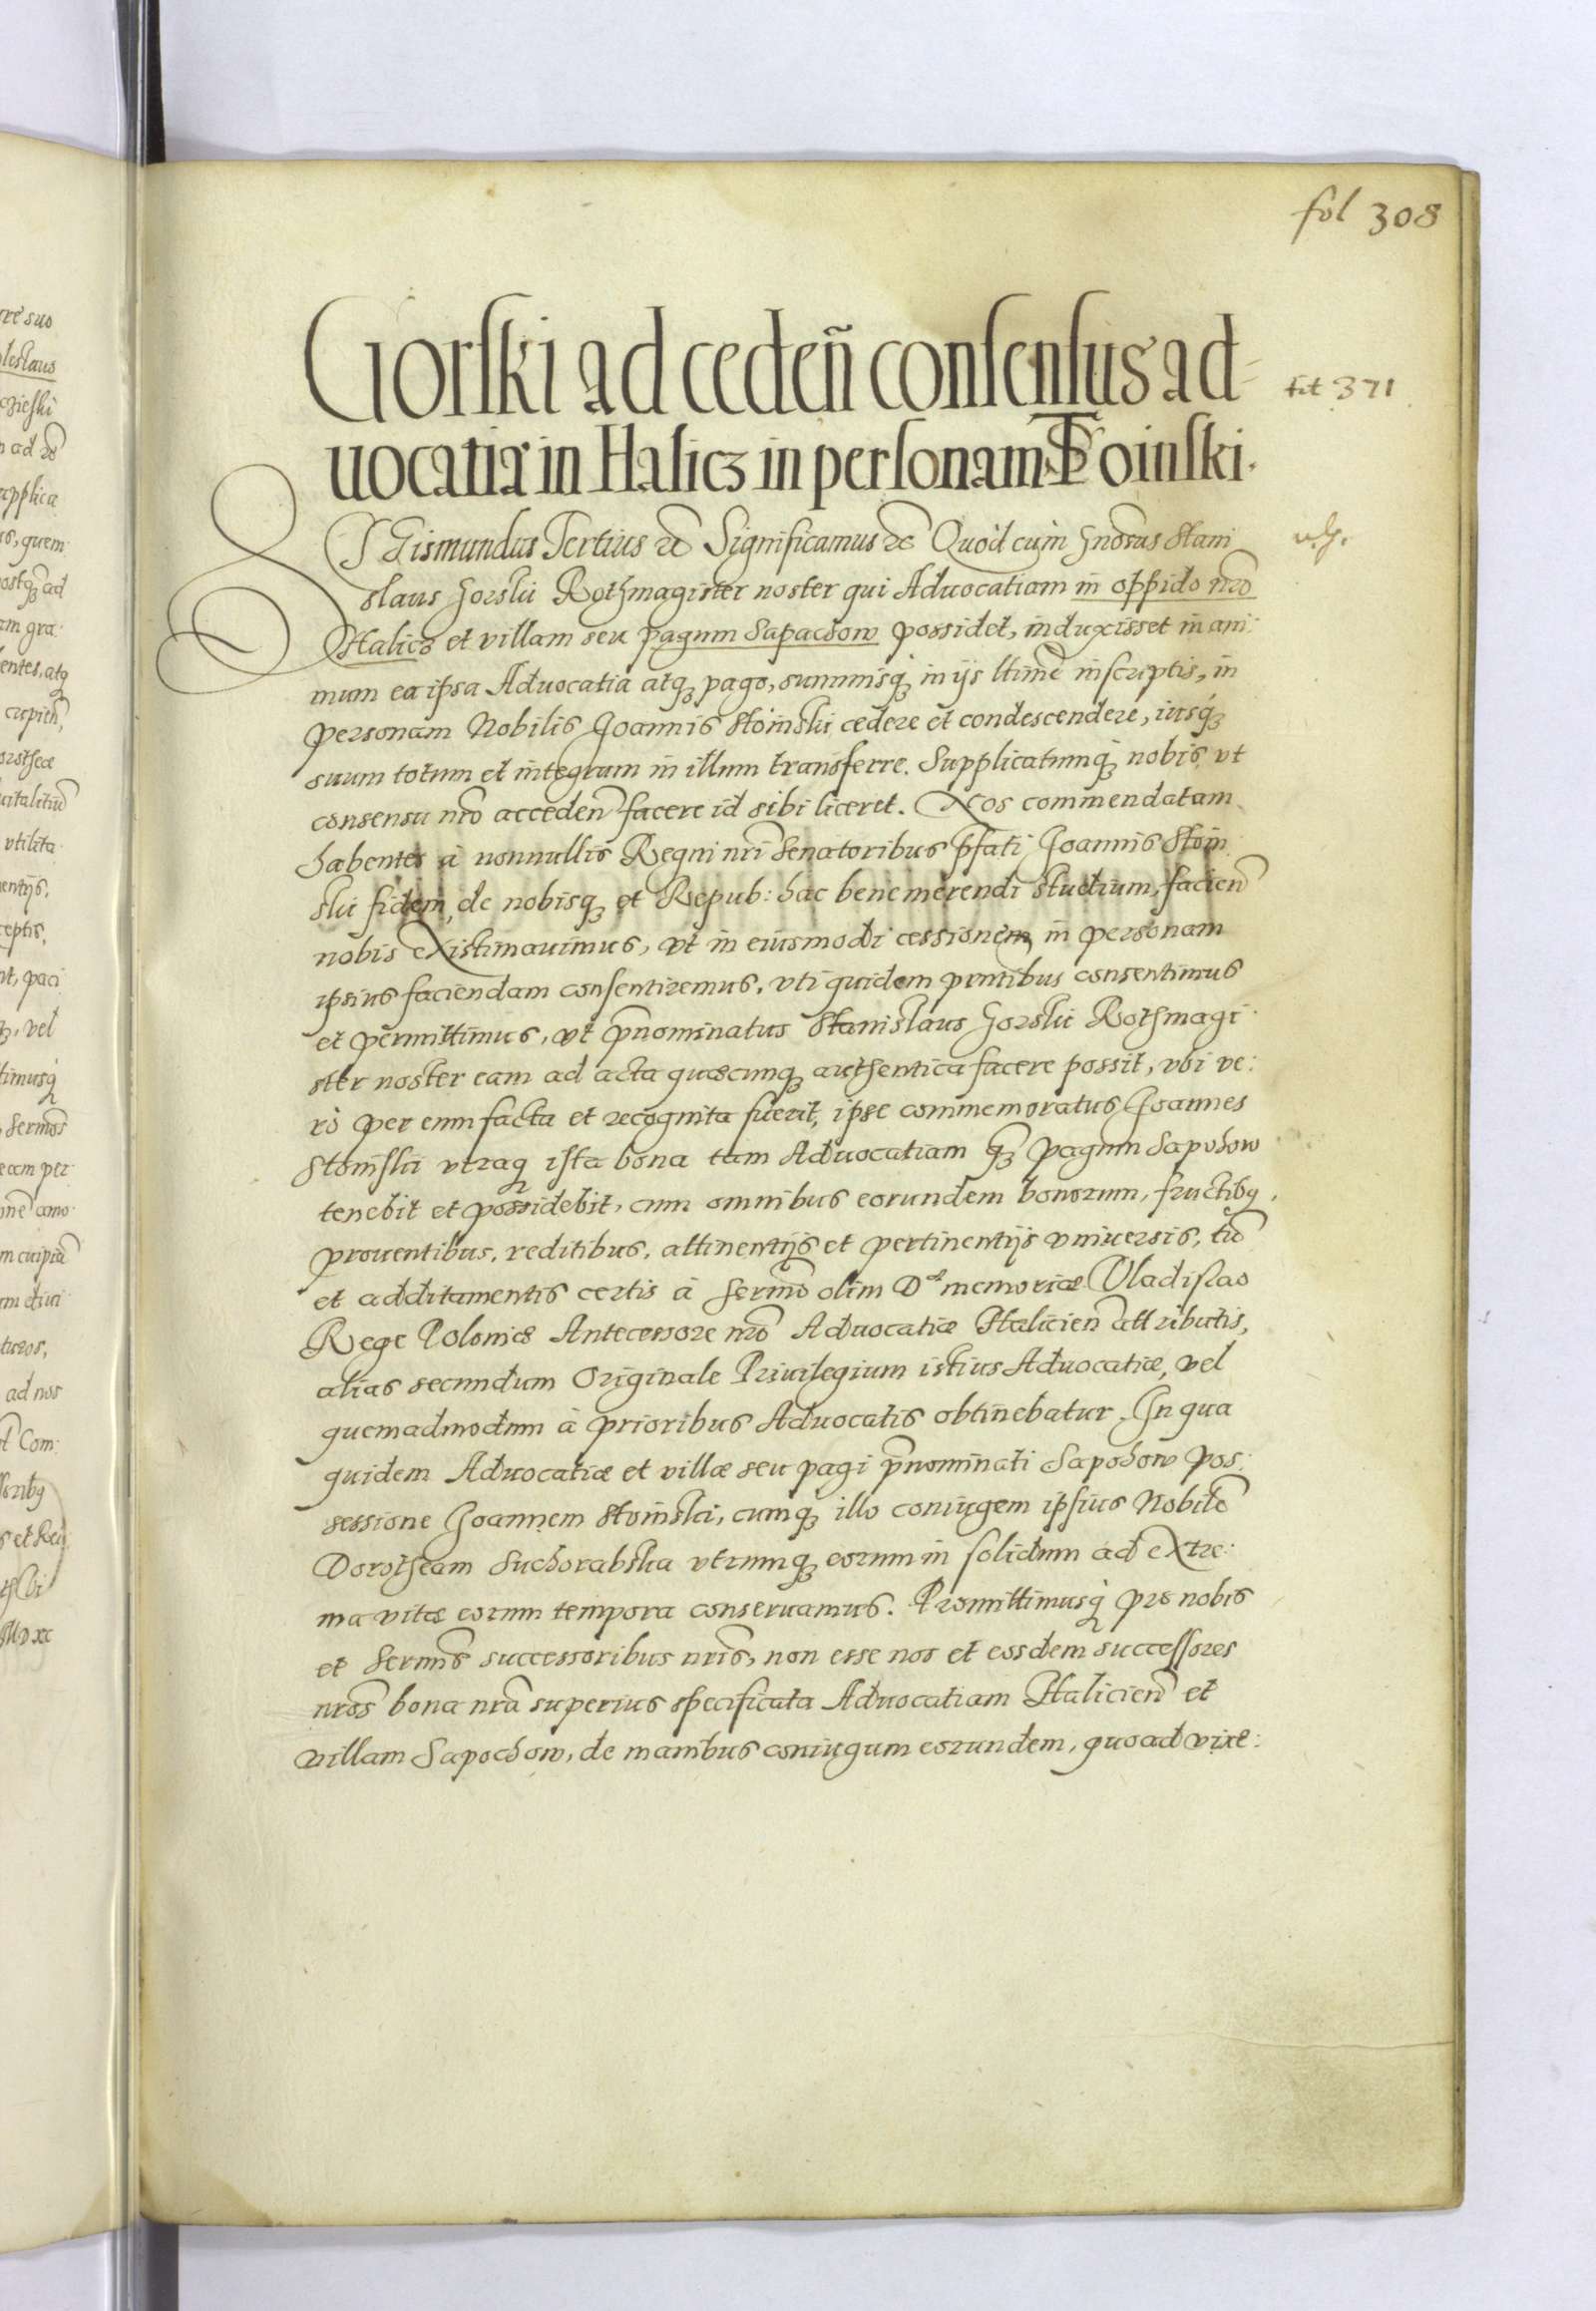 fol 308
Gorski ad cedeñ consensus ad=
tit 371
uocatia in Halicz in personam Stoinski.
SIGismundus Tertius &c Significamus &c Quòd cùm Gnosus Stani
slaus Gorski Rothmagister noster qui Aduocatiam in oppido nro
Halicz et villam seu pagum Sapachow possidet, induxisset in ani:
mum ea ipsa Aduocatia atq3 pago, summisq3 in ijs ltime inscriptis, in
personam Nobilis Joannis Stoinski cedere et condescendere, iusq3
suum totum et integrum in illum transferre. Supplicatumq3 nobis, vt
consensu nro acceden facere id sibi liceret. Nos commendatam
habentes à nonnullis Regni nri Senatoribus pfati Joannis Stoin
ski fidem, de nobisq3 et Repub: hac bene merendi studium, facien
nobis existimauimus, vt in eiusmodi cessionem in personam
ipsius faciendam consentiremus, vti quidem pntibus consentimus
et permittimus, vt pnominatus Stanislaus Gorski Rothmagi
ster noster eam ad acta quæcunq3 authentica facere possit, vbi ve:
rò per eum facta et recognita fuerit, ipse commemoratus Joannes
Stoinski vtraq3 ista bona tam Aduocatiam q3 pagum Sapohow
tenebit et possidebit, cum omnibus eorundem bonorum, fructibq
prouentibus, reditibus, attinentijs et pertinentijs vniuersis, tũ
et additamentis certis à Sermo olim D memoriæ Vladislao
Rege Poloniæ Antecessore nro Aduocatiæ Halicien attributis,
alias secundum Originale Priuilegium istius Aduocatiæ, vel
quemadmodum à prioribus Aduocatis obtinebatur. In qua
quidem Aduocatiæ et villæ seu pagi pnominati Sapohow pos:
sessione Joannem Stoinski, cumq3 illo coniugem ipsius Nobilẽ
Dorotheam Suchorabska vtrumq3 eorum in solidum ad extre:
ma vitæ eorum tempora conseruamus. Promittimusq3 pro nobis
et Sermis successoribus nris, non esse nos et eosdem successores
nros bona nra superius specificata Aduocatiam Halicien et
villam Sapochow, de manibus coniugum eorundem, quoad vixe: